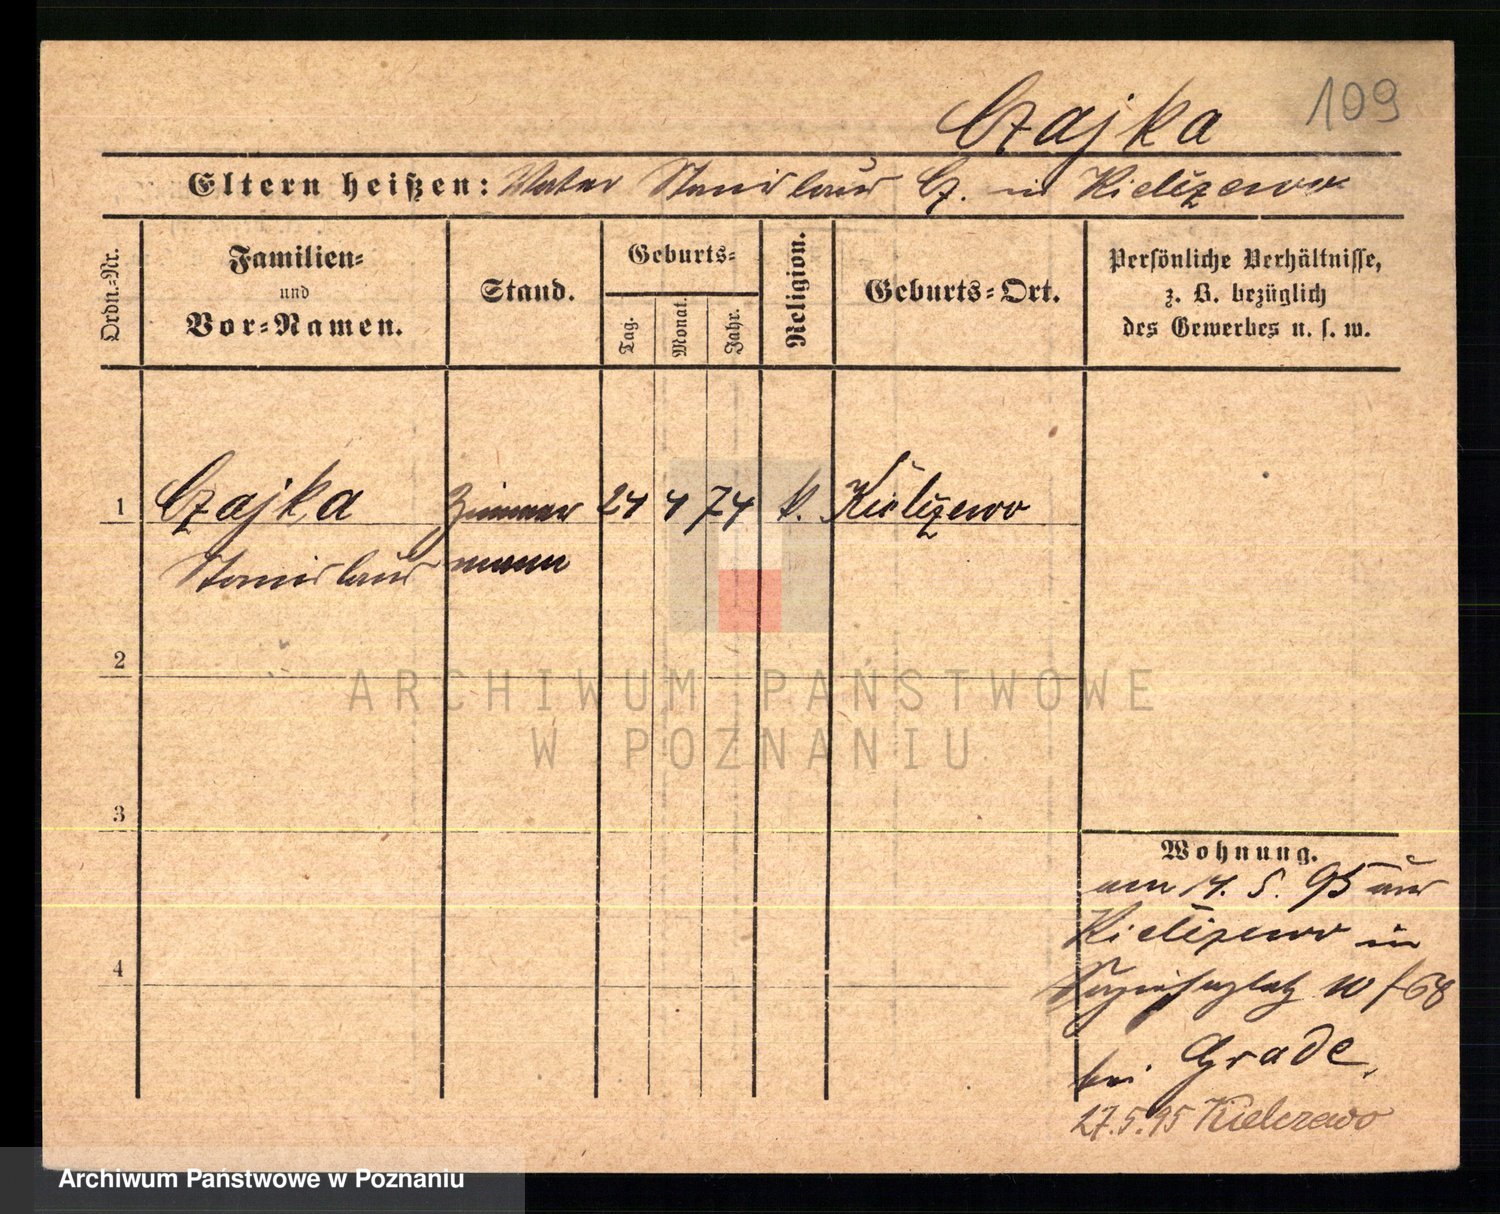 109
Czajka
Eltern heißen: Vater Stanislaus Cz. in Kielczewo
Ordn.-Nr.
Familien-
und
Vor-Namen.
Stand.
Geburts-
Tag.
Monat.
Jahr.
Religion.
Geburts-Ort.
Persönliche Verhältnisse,
z. B. bezüglich
des Gewerbes u. s. w.
1 Czajka Zimmer 24 4 74 k. Kielczewo
Stanislaus mann
2
3
4
Wohnung.
am 14. 5. 95 aus
Kielczewo in
68
bei Grade.
27.5.95 Kielczewo
ARCHIWUM PAŃSTWOWE
W POZNANIU
Archiwum Państwowe w Poznaniu